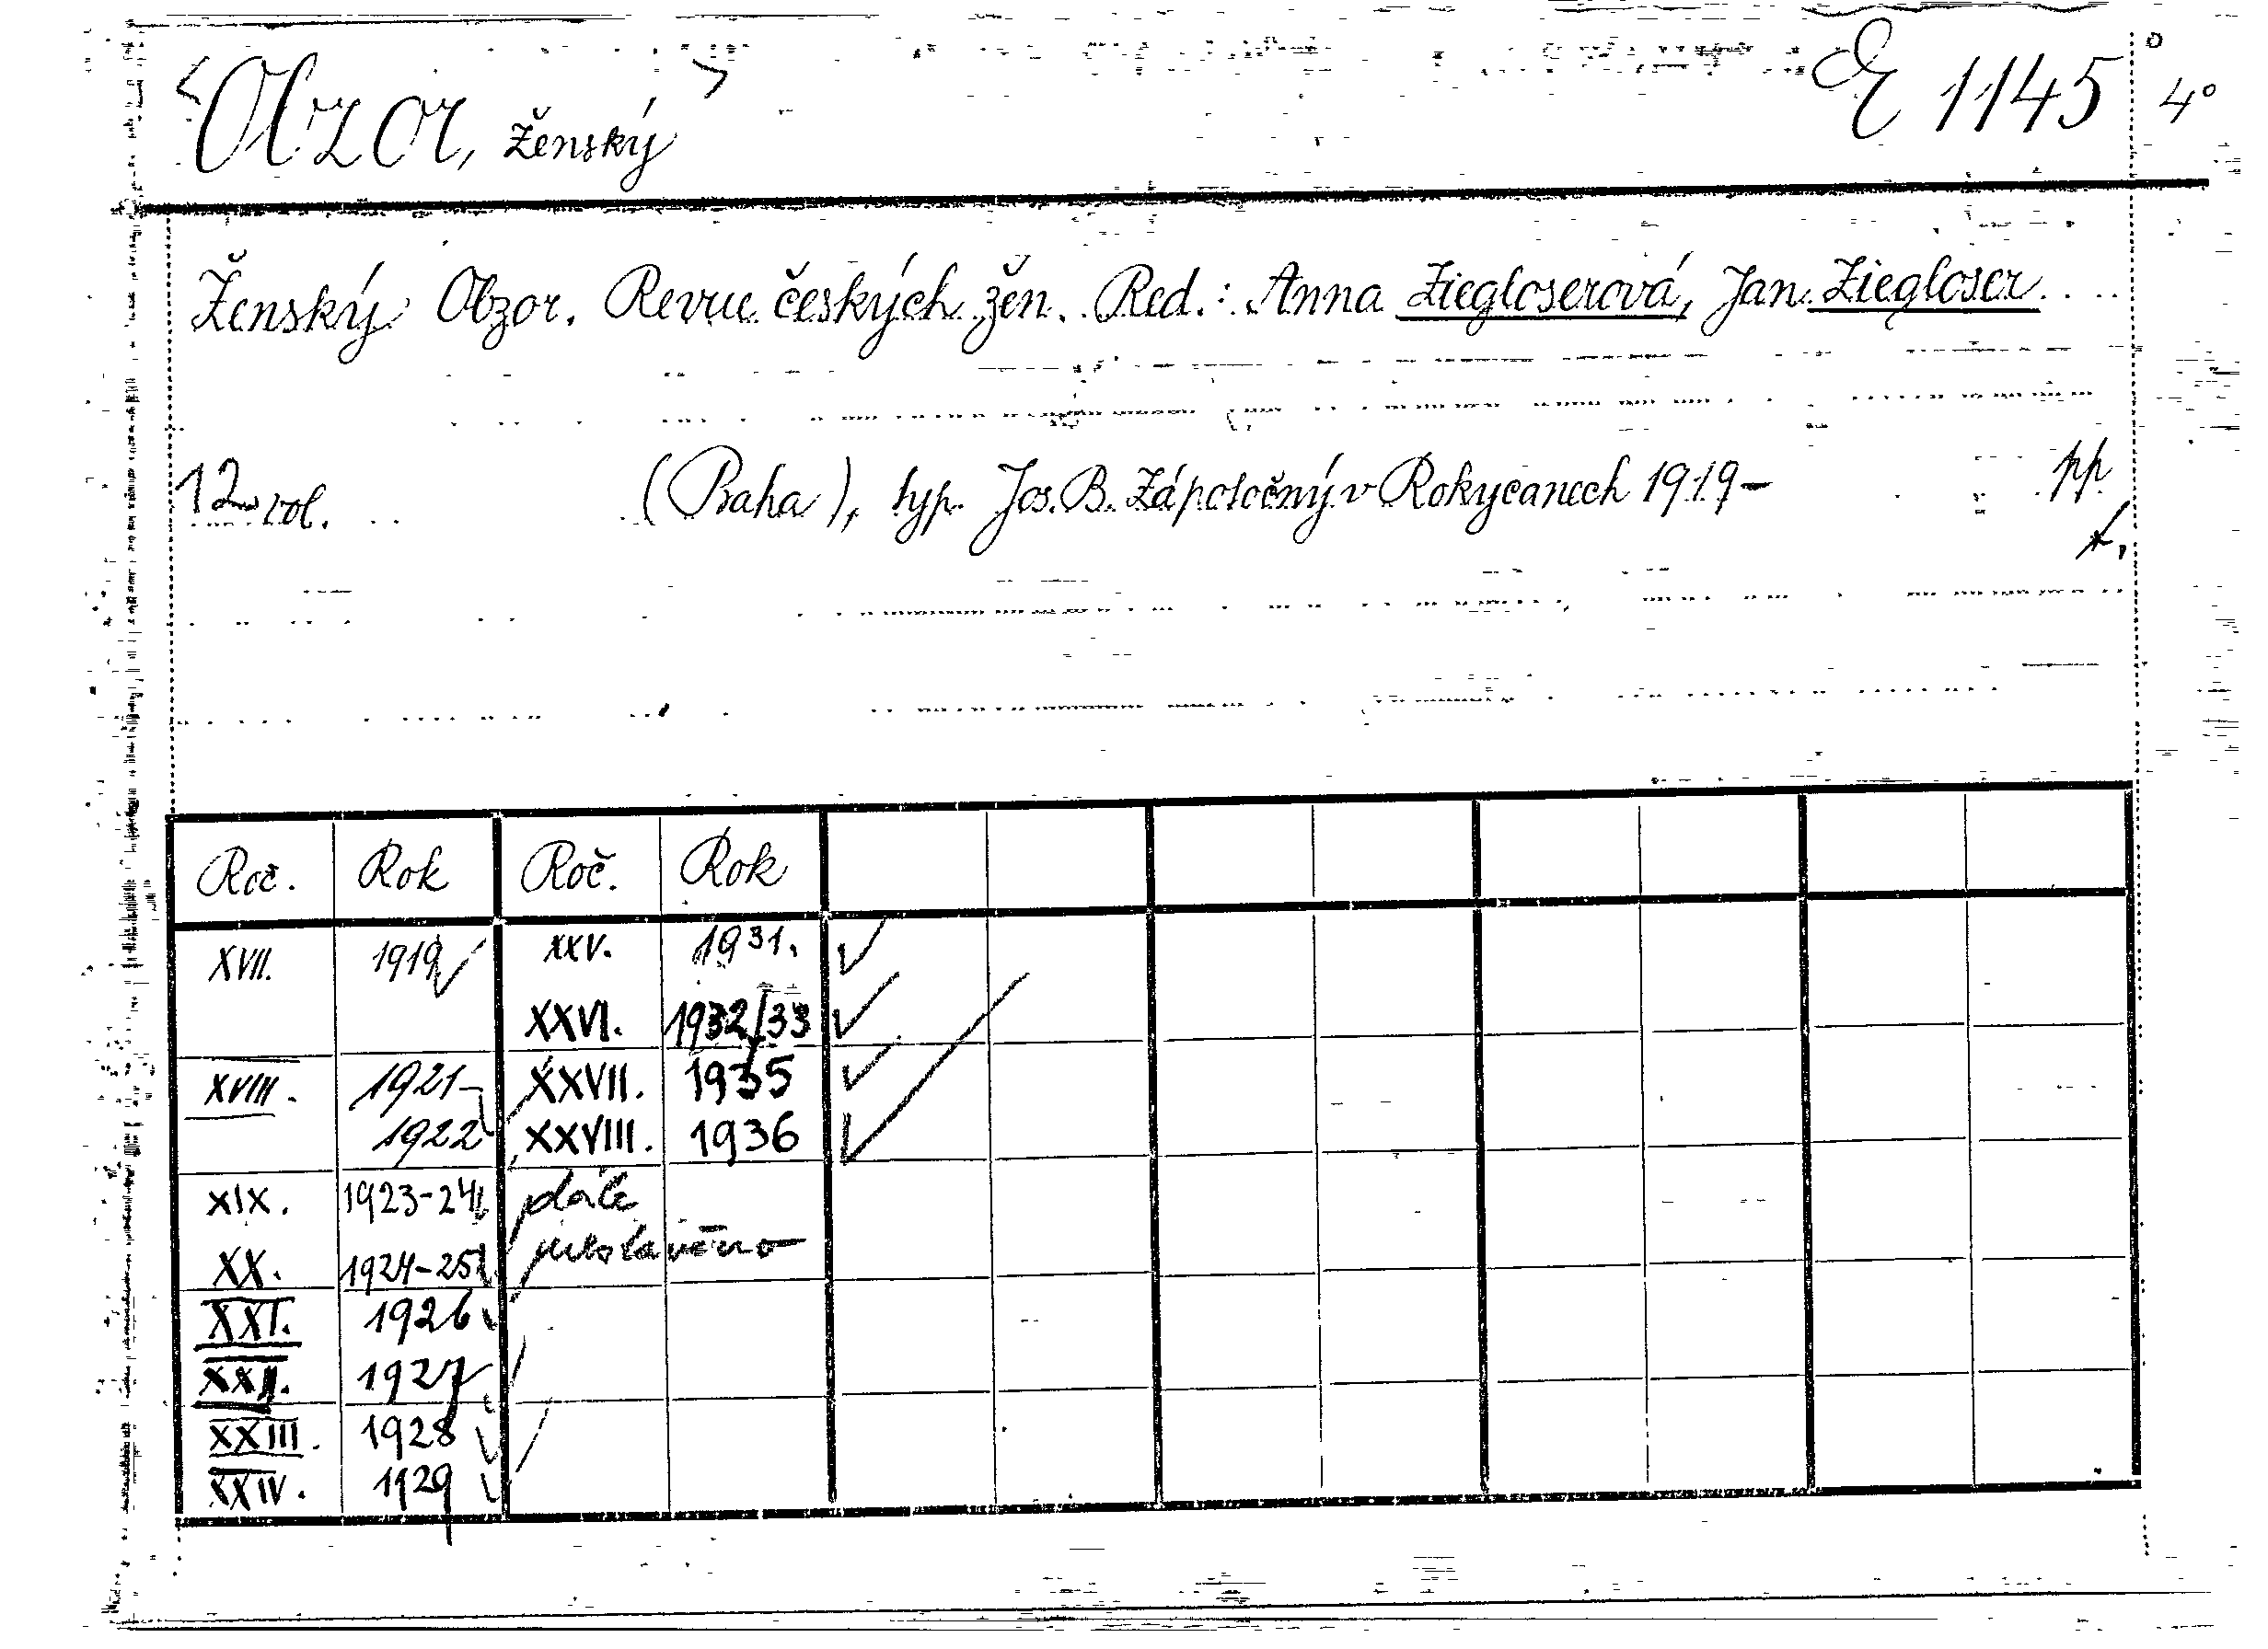 <Obzor, ženský> E 1145 4°
Ženský Obzor. Revue českých žen. Red.: Anna Ziegloserová, Jan Ziegloser
12 vol. (Praha), typ. Jos. B. Zápotočný v Rokycanech 1919- pp
Roč. Rok Roč. Rok
XVII. 1919 XXV. 1931.
XXVI. 1932/33
XVIII. 1921- XXVII. 1935
1922 XXVIII. 1936
XIX. 1923-24 dále
XX. 1924-25 nestavěno
XXI. 1926
XXII. 1927
XXIII. 1928
XXIV. 1929